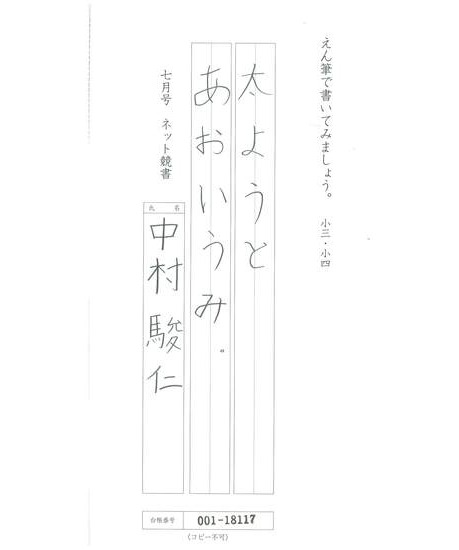 えん筆で書いてみましょう。 小三・小四
太ようと
あおいうみ。
七月号 ネット競書
氏名
中村駿仁
台帳番号 001-18117
(コピー不可)